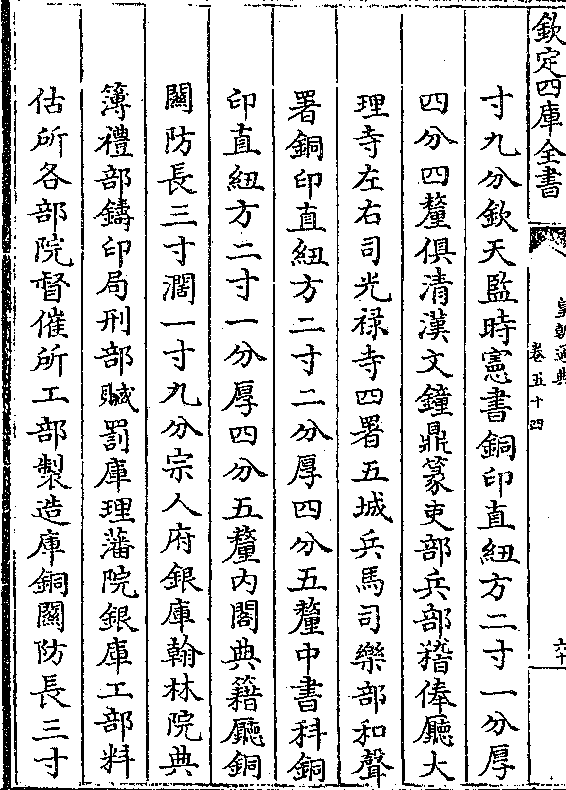 欽定四庫全書
皇朝通典
卷五十四
六十
寸九分欽天監時憲書銅印直紐方二寸一分厚
四分四釐俱清漢文鐘鼎篆吏部兵部稽俸廳大
理寺左右司光祿寺四署五城兵馬司樂部和聲
署銅印直紐方二寸二分厚四分五釐中書科銅
印直紐方二寸一分厚四分五釐內閣典籍廳銅
關防長三寸濶一寸九分宗人府銀庫翰林院典
簿禮部鑄印局刑部贓罰庫理藩院銀庫工部料
估所各部院督催所工部製造庫銅關防長三寸